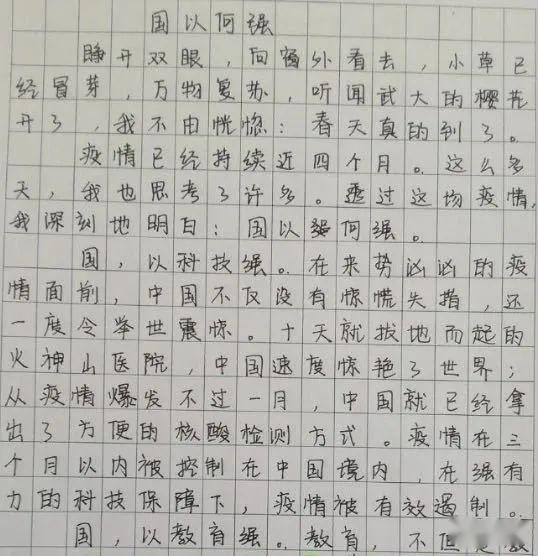 国以何强
睁开双眼，向窗外看去，小草已
经冒芽，万物复苏，听闻武大的樱花
开了，我不由恍惚：春天真的到了。
疫情已经持续近四个月。这么多
天，我也思考了许多。透过这场疫情，
我深刻地明白：国以何强。
国，以科技强。在来势汹汹的疫
情面前，中国不仅没有惊慌失措，还
一度令举世震惊。十天就拔地而起的
火神山医院，中国速度惊艳了世界；
从疫情爆发不过一月，中国就已经拿
出了方便的核酸检测方式。疫情在三
个月以内被控制在中国境内，在强有
力的科技保障下，疫情被有效遏制。
国，以教育强。教育，不但